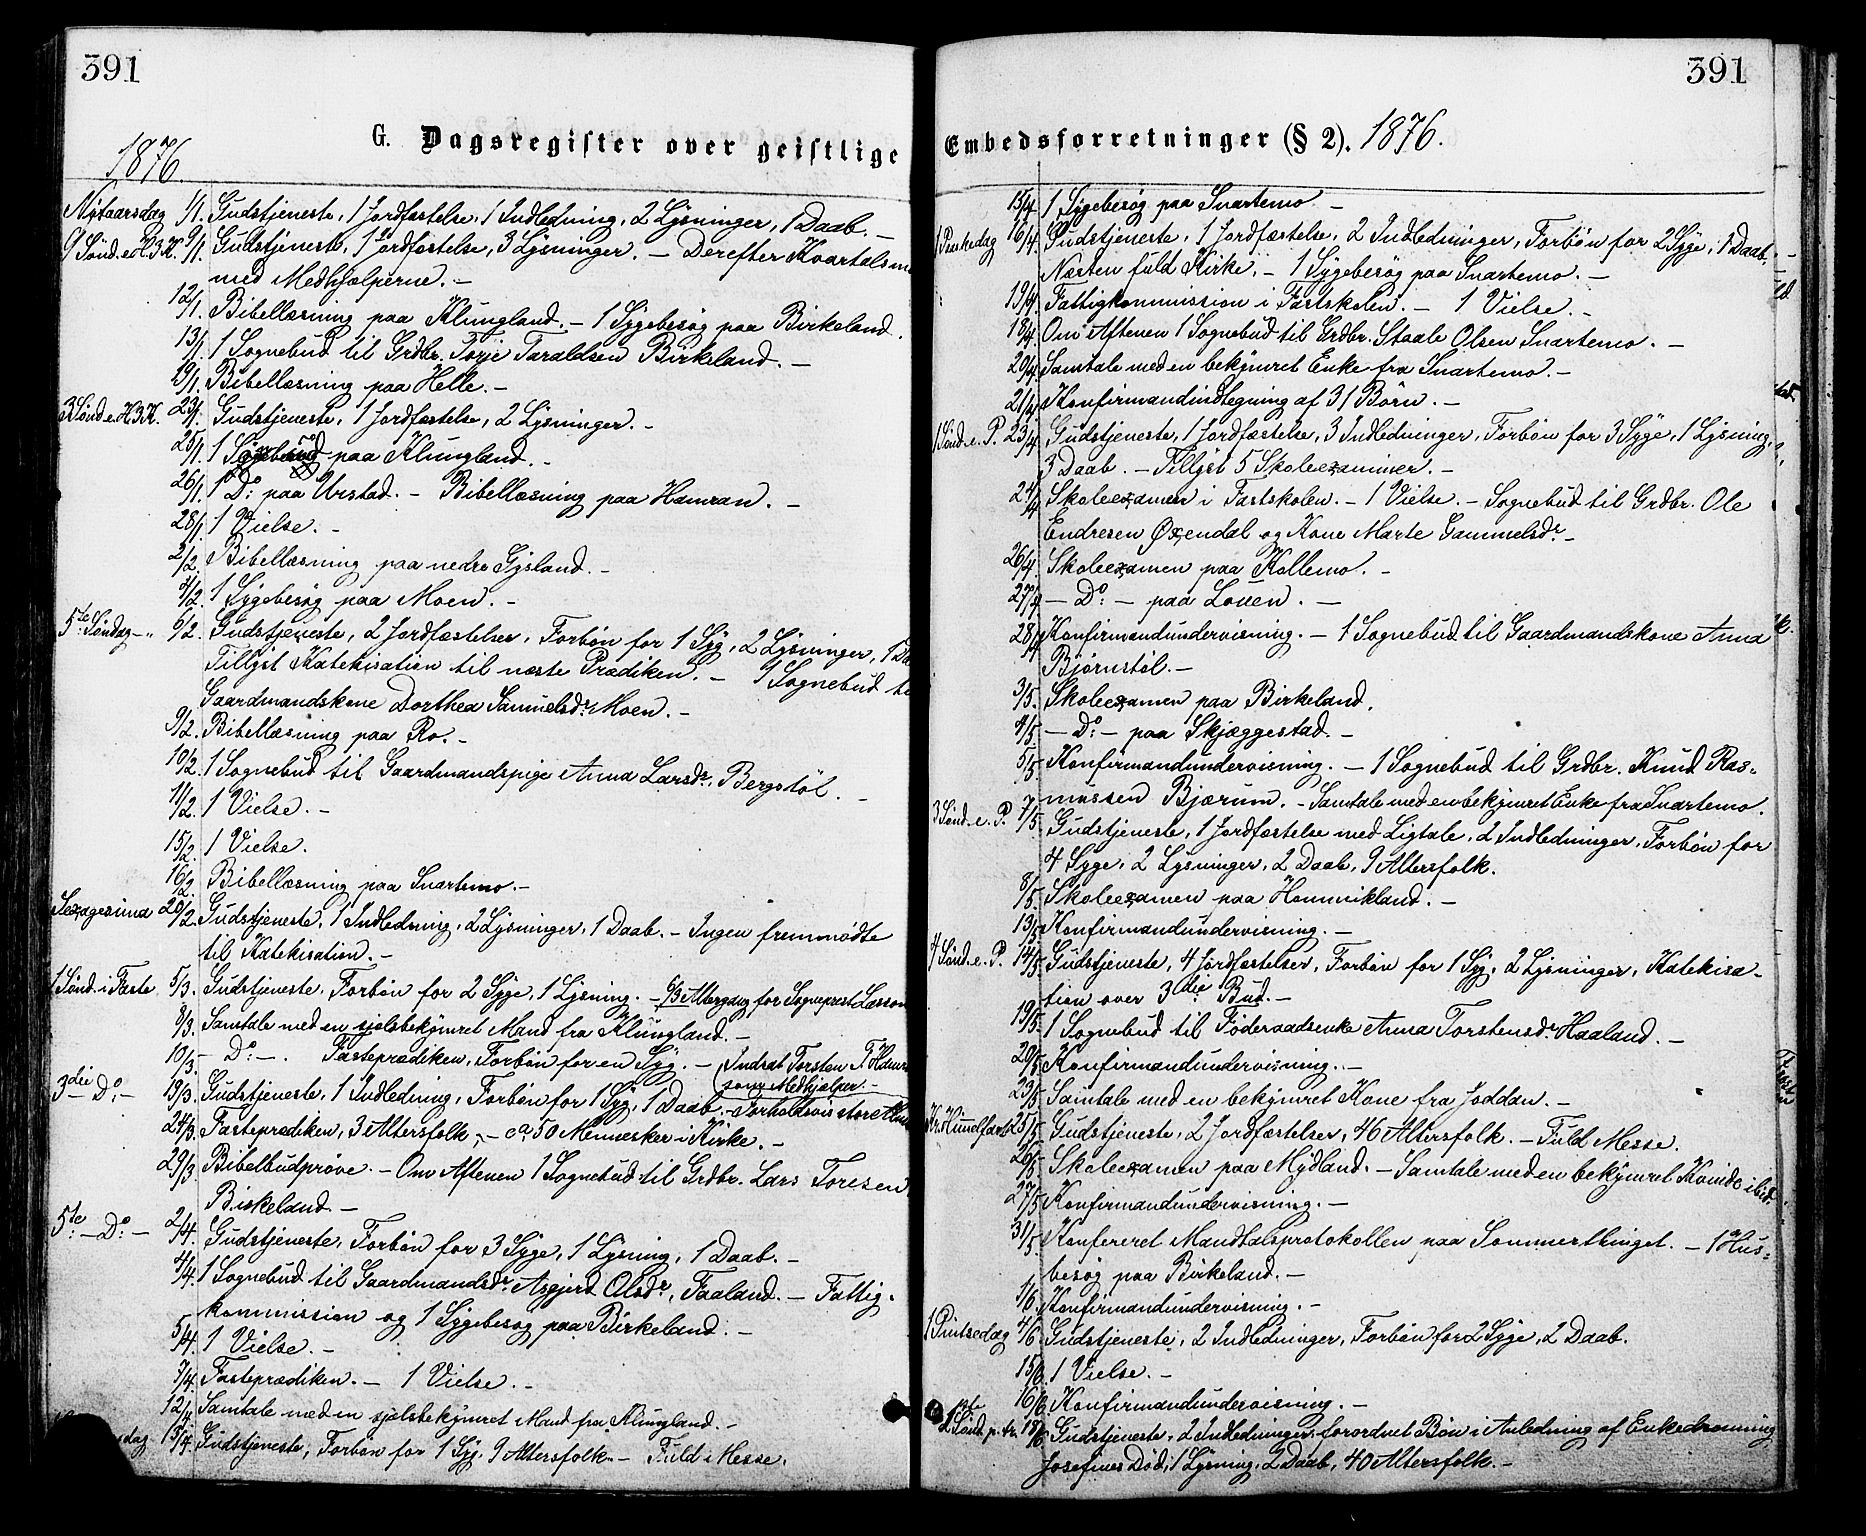 391
G. Dagsregister over geistlige
1876.
Nytaarsdag 1/1. Gudstjeneste, 1 Jordfæstelse, 1 Indledning, 2 Lysninger, 1 Daab. –
9/1. Gudstjeneste, 1 Jordfæstelse, 3 Lysninger. – Derefter
med Medhjælperne. –
12/1. Bibellæsning paa Klungland. – 1 Sygebesøg paa Birkeland.
13/1. 1 Sognebud til Grdbr. Torje Taraldsen Birkeland. –
19/1. Bibellæsning paa Helle. –
3 Sønd. e. H. 3 K. 23/1. Gudstjeneste, 1 Jordfæstelse, 2 Lysninger. –
25/1. 1 paa Klungland. –
26/1. 1 Do: paa Urstad. – Bibellæsning paa Hamran. –
28/1. 1 Vielse. –
2/2. Bibellæsning paa nedre Gysland. –
4/2. 1 Sygebesøg paa Moen. –
5te Søndag – " 6/2. Gudstjeneste, 2 Jordfæstelser, Forbøn for 1 Syg, 2 Lysninger, 1
Tillyst Katekisation til næste Prædiken. – 1 Sognebud
Gaardmandskone Dorthea Samuelsdr. Moen. –
9/2. Bibellæsning paa Ro. –
10/2. 1 Sognebud til Gaardmandspige Anna Larsdr. Bergstøl. –
11/2. 1 Vielse. –
15/2. 1 Vielse.
16/2. Bibellæsning paa Snartemo. –
Sexagesima 20/2. Gudstjeneste, 1 Indledning, 2 Lysninger, 1 Daab. – Ingen fremmødte
til Katekisation. –
1 Sønd. i Faste 5/3. Gudstjeneste, Forbøn for 2 Syge, 1 Lysning. – 6/3 Altergang for Sogneprest
8/3. Samtale med en sjælsbekymret Mand fra Klungland. –
10/3. – Do: –. Fasteprædiken, Forbøn for en Syg. – Indsat Torsten T.
som Medhjælper. –
3die – Do: – 19/3. Gudstjeneste, 1 Indledning, Forbøn for 1 Syg, 1 Daab. – Forholdsvis store
24/3. Fasteprædiken, 3 Altersfolk, – ca 50 Mennesker i Kirke. –
29/3. Bibelbudprøve. – Om Aftenen 1 Sognebud til Grdbr. Lars Toresen
Birkeland. –
5te – Do: – 2/4. Gudstjeneste, Forbøn for 3 Syge, 1 Lysning, 1 Daab. –
4/4. 1 Sognebud til Gaardmandsdr. Asgjerd Olsdr. Faaland. – Fattig-
kommission og 1 Sygebesøg paa Birkeland. –
5/4. 1 Vielse. –
7/4. Fasteprædiken. – 1 Vielse. –
12/4. Samtale med en sjælsbekymret Mand fra Klungland. –
Gudstjeneste, Forbøn for 1 Syg, 9 Altersfolk. – Fuld Messe.
391
Embedsforretninger (§ 2). 1876.
15/4. 1 Sygebesøg paa Snartemo –
1 Paaskedag 16/4. Gudstjeneste, 1 Jordfæstelse, 2 Indledninger, Forbøn for 2 Syge, 1 Daab.
Næsten fuld Kirke. – 1 Sygebesøg paa Snartemo. –
19/4. Fattigkommission i Fastskolen. – 1 Vielse. –
18/4. Om Aftenen 1 Sognebud til Grdbr. Staale Olsen Snartemo. –
20/4. Samtale med en bekymret Enke fra Snartemo. –
21/4. Konfirmandindtegning af 31 Børn. –
1 Sønd. e. P. 23/4. Gudstjeneste, 1 Jordfæstelse, 3 Indledninger, Forbøn for 3 Syge, 1 Lysning,
3 Daab. – Tillyst 5 Skoleexaminer. –
24/4. Skoleexamen i Fastskolen. – 1 Vielse. – Sognebud til Grdbr. Ole
Endresen Øxendal og Kone Marte Gammelsdr. –
26/4. Skoleexamen paa Kollemo. –
27/4. – Do: – paa Louen. –
28/4. Konfirmandundervisning. – 1 Sognebud til Gaardmandskone Anna
Bjørnstøl. –
3/5. Skoleexamen paa Birkeland.
4/5. – Do: – paa Skjæggestad. –
5/5. Konfirmandundervisning. – 1 Sognebud til Grdbr. Knud Ras-
mussen Bjærum. – Samtale med en bekymret Enke fra Snartemo.
3 Sønd. e. P. 7/5. Gudstjeneste, 1 Jordfæstelse med Ligtale, 2 Indledninger, Forbøn for
4 Syge, 2 Lysninger, 2 Daab, 9 Altersfolk.
8/5. Skoleexamen paa Hommikland. –
13/5. Konfirmandundervisning. –
4 Sønd. e. P. 14/5. Gudstjeneste, 4 Jordfæstelser, Forbøn for 1 Syg, 2 Lysninger, Katekisa-
tion over 3die Bud. –
19/5. 1 Sognebud til Føderaadsenke Anna Torstensdr. Haaland. –
20/5. Konfirmandundervisning. –
23/5. Samtale med en bekymret Kone fra Joddan. –
Kr. Himmelfart 25/5. Gudstjeneste, 2 Jordfæstelser, 46 Altersfolk. – Fuld Messe.
26/5. Skoleexamen paa Mydland. – Samtale med en bekymret Kvinde ibid.
27/5. Konfirmandundervisning. –
31/5. Konfereret Mandtalsprotokollen paa Sommerthinget. – 1 Hus-
besøg paa Birkeland. –
1/6. Konfirmandundervisning. –
1 Pintsedag 4/6. Gudstjeneste, 2 Indledninger, Forbøn for 2 Syge, 2 Daab.
15/6. 1 Vielse. –
16/6. Konfirmandundervisning. –
Sønd. p. tr. 18/6. Gudstjeneste, 2 Indledninger, forordnet Bøn i Anledning af Enkedronning
Josefines Død, 1 Lysning, 2 Daab, 40 Altersfolk. –